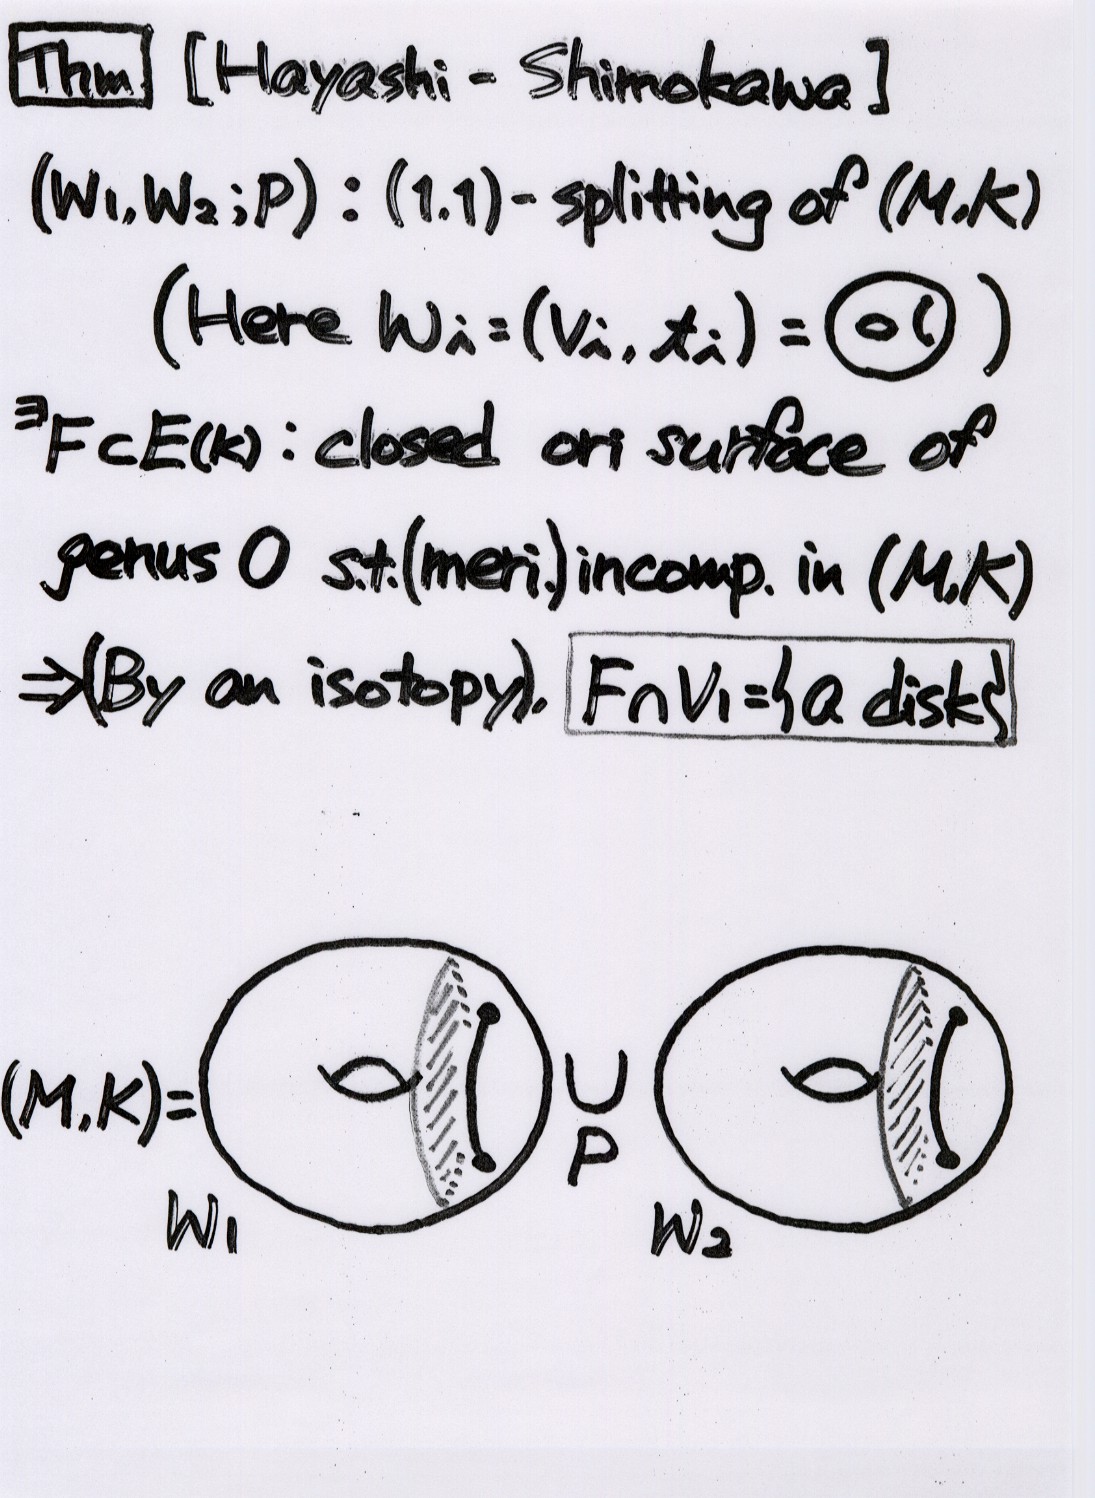 Thm [Hayashi - Shimokawa]
(W₁, W₂ ; P) : (1.1) - splitting of (M,K)
(Here Wi = (Vi, ti) = )
∃F⊂E(K) : closed ori surface of
genus 0 s.t. (meri.) incomp. in (M,K)
⇒(By an isotopy). F∩V₁={a disk}
(M,K)= ∪
P
W₁ W₂